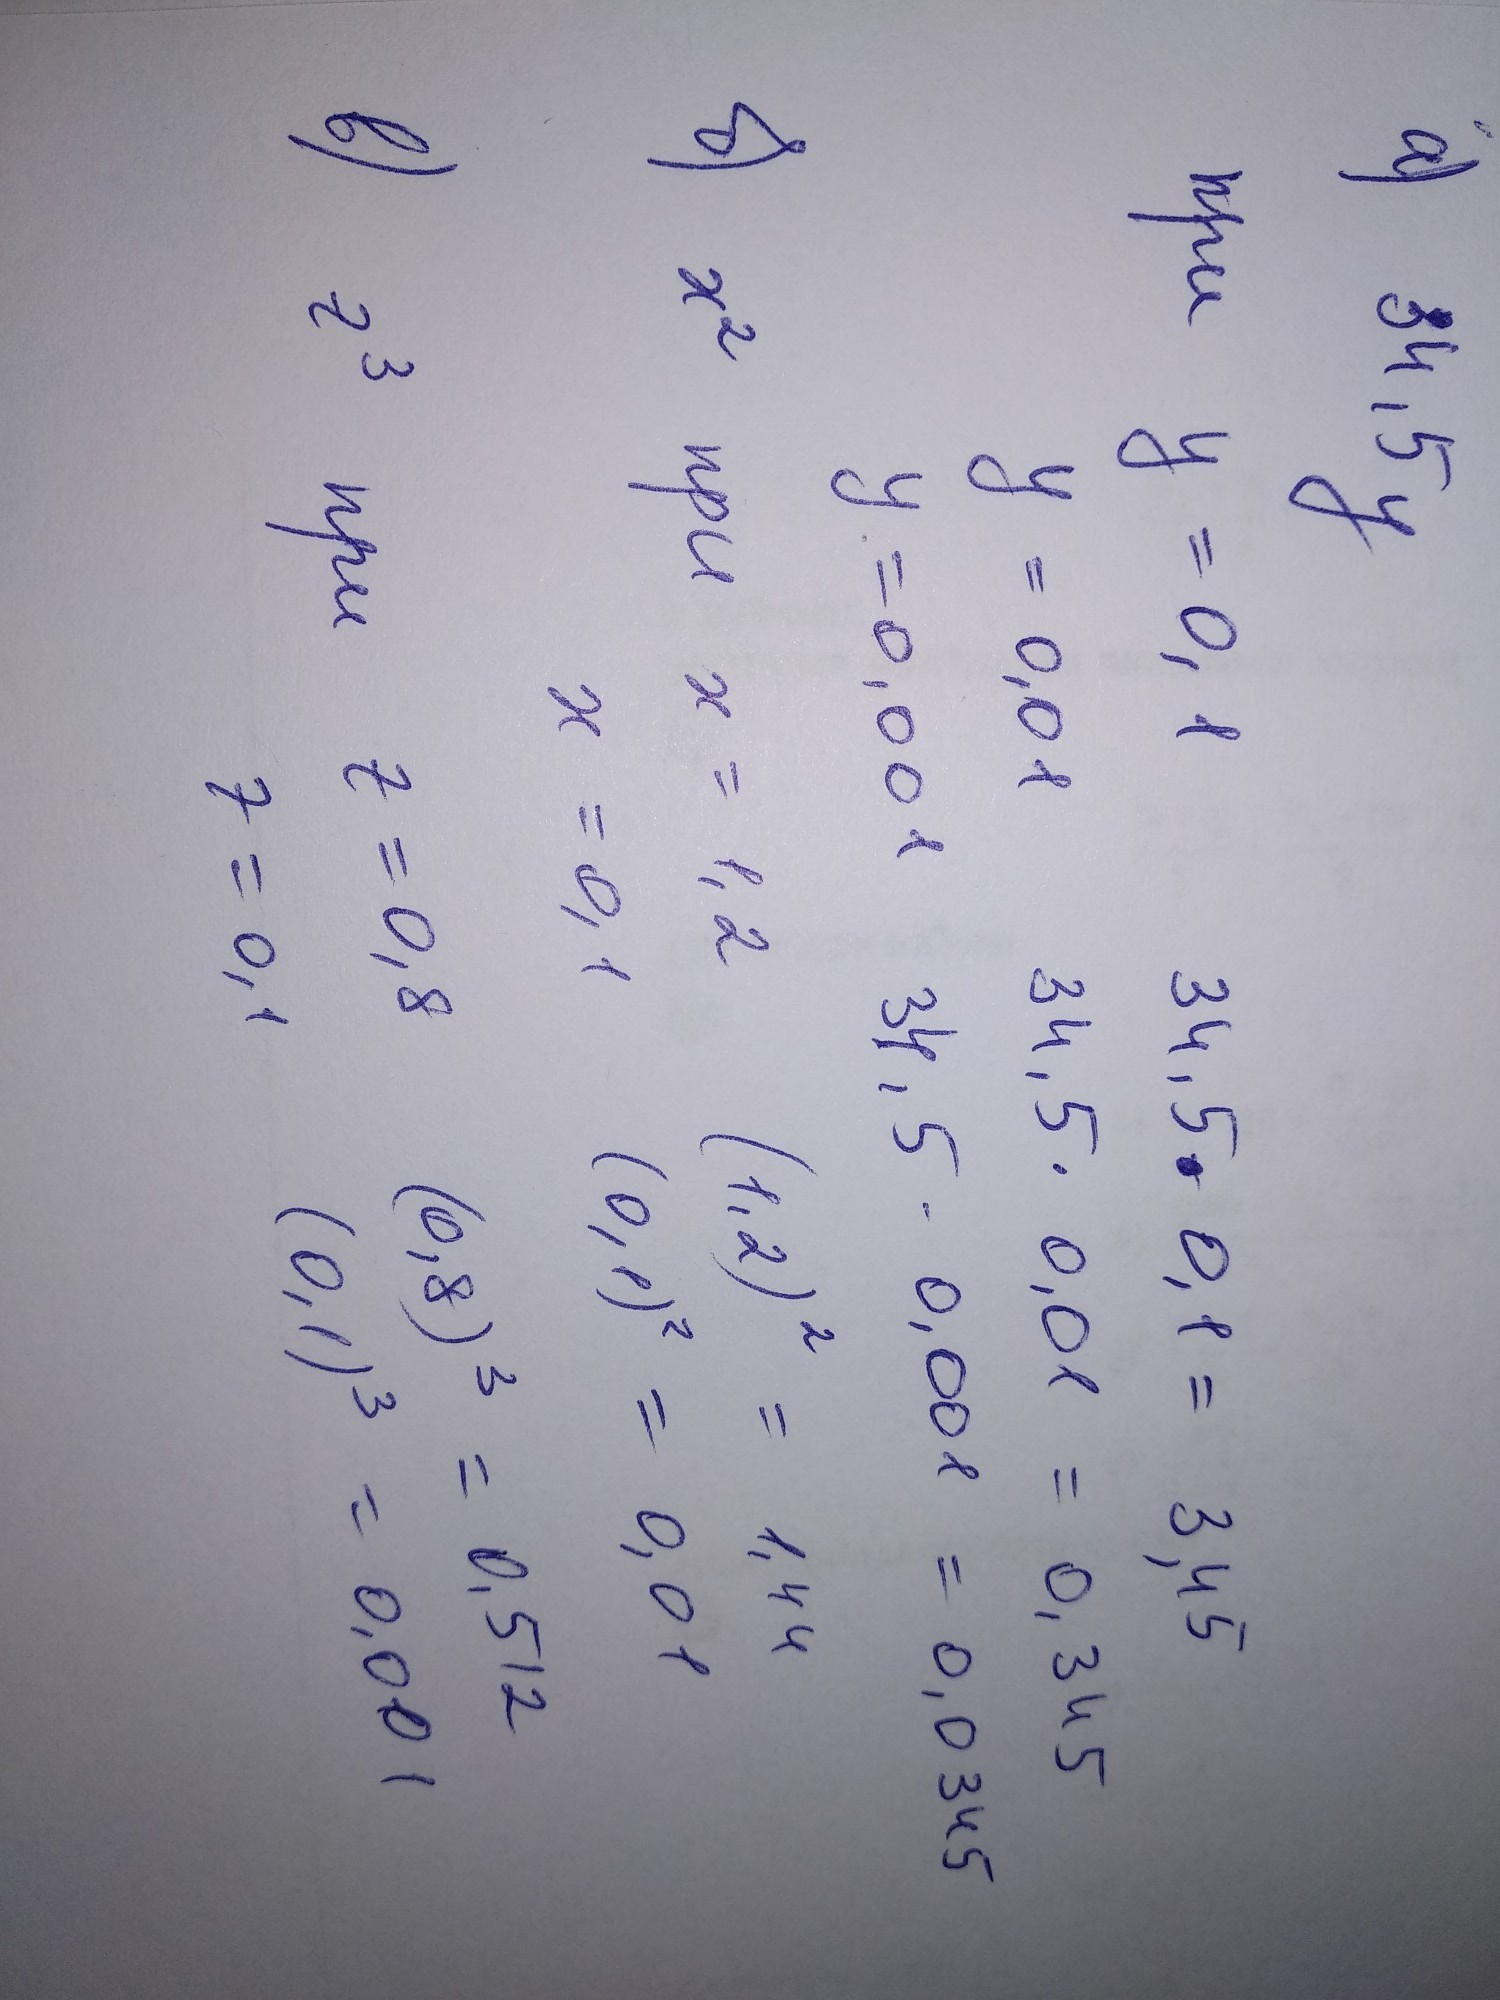 а) 34,5y
при y = 0,1 34,5 · 0,1 = 3,45
y = 0,01 34,5 · 0,01 = 0,345
y = 0,001 34,5 · 0,001 = 0,0345
б) x² при x = 1,2 (1,2)² = 1,44
x = 0,1 (0,1)² = 0,01
в) z³ при z = 0,8 (0,8)³ = 0,512
z = 0,1 (0,1)³ = 0,001